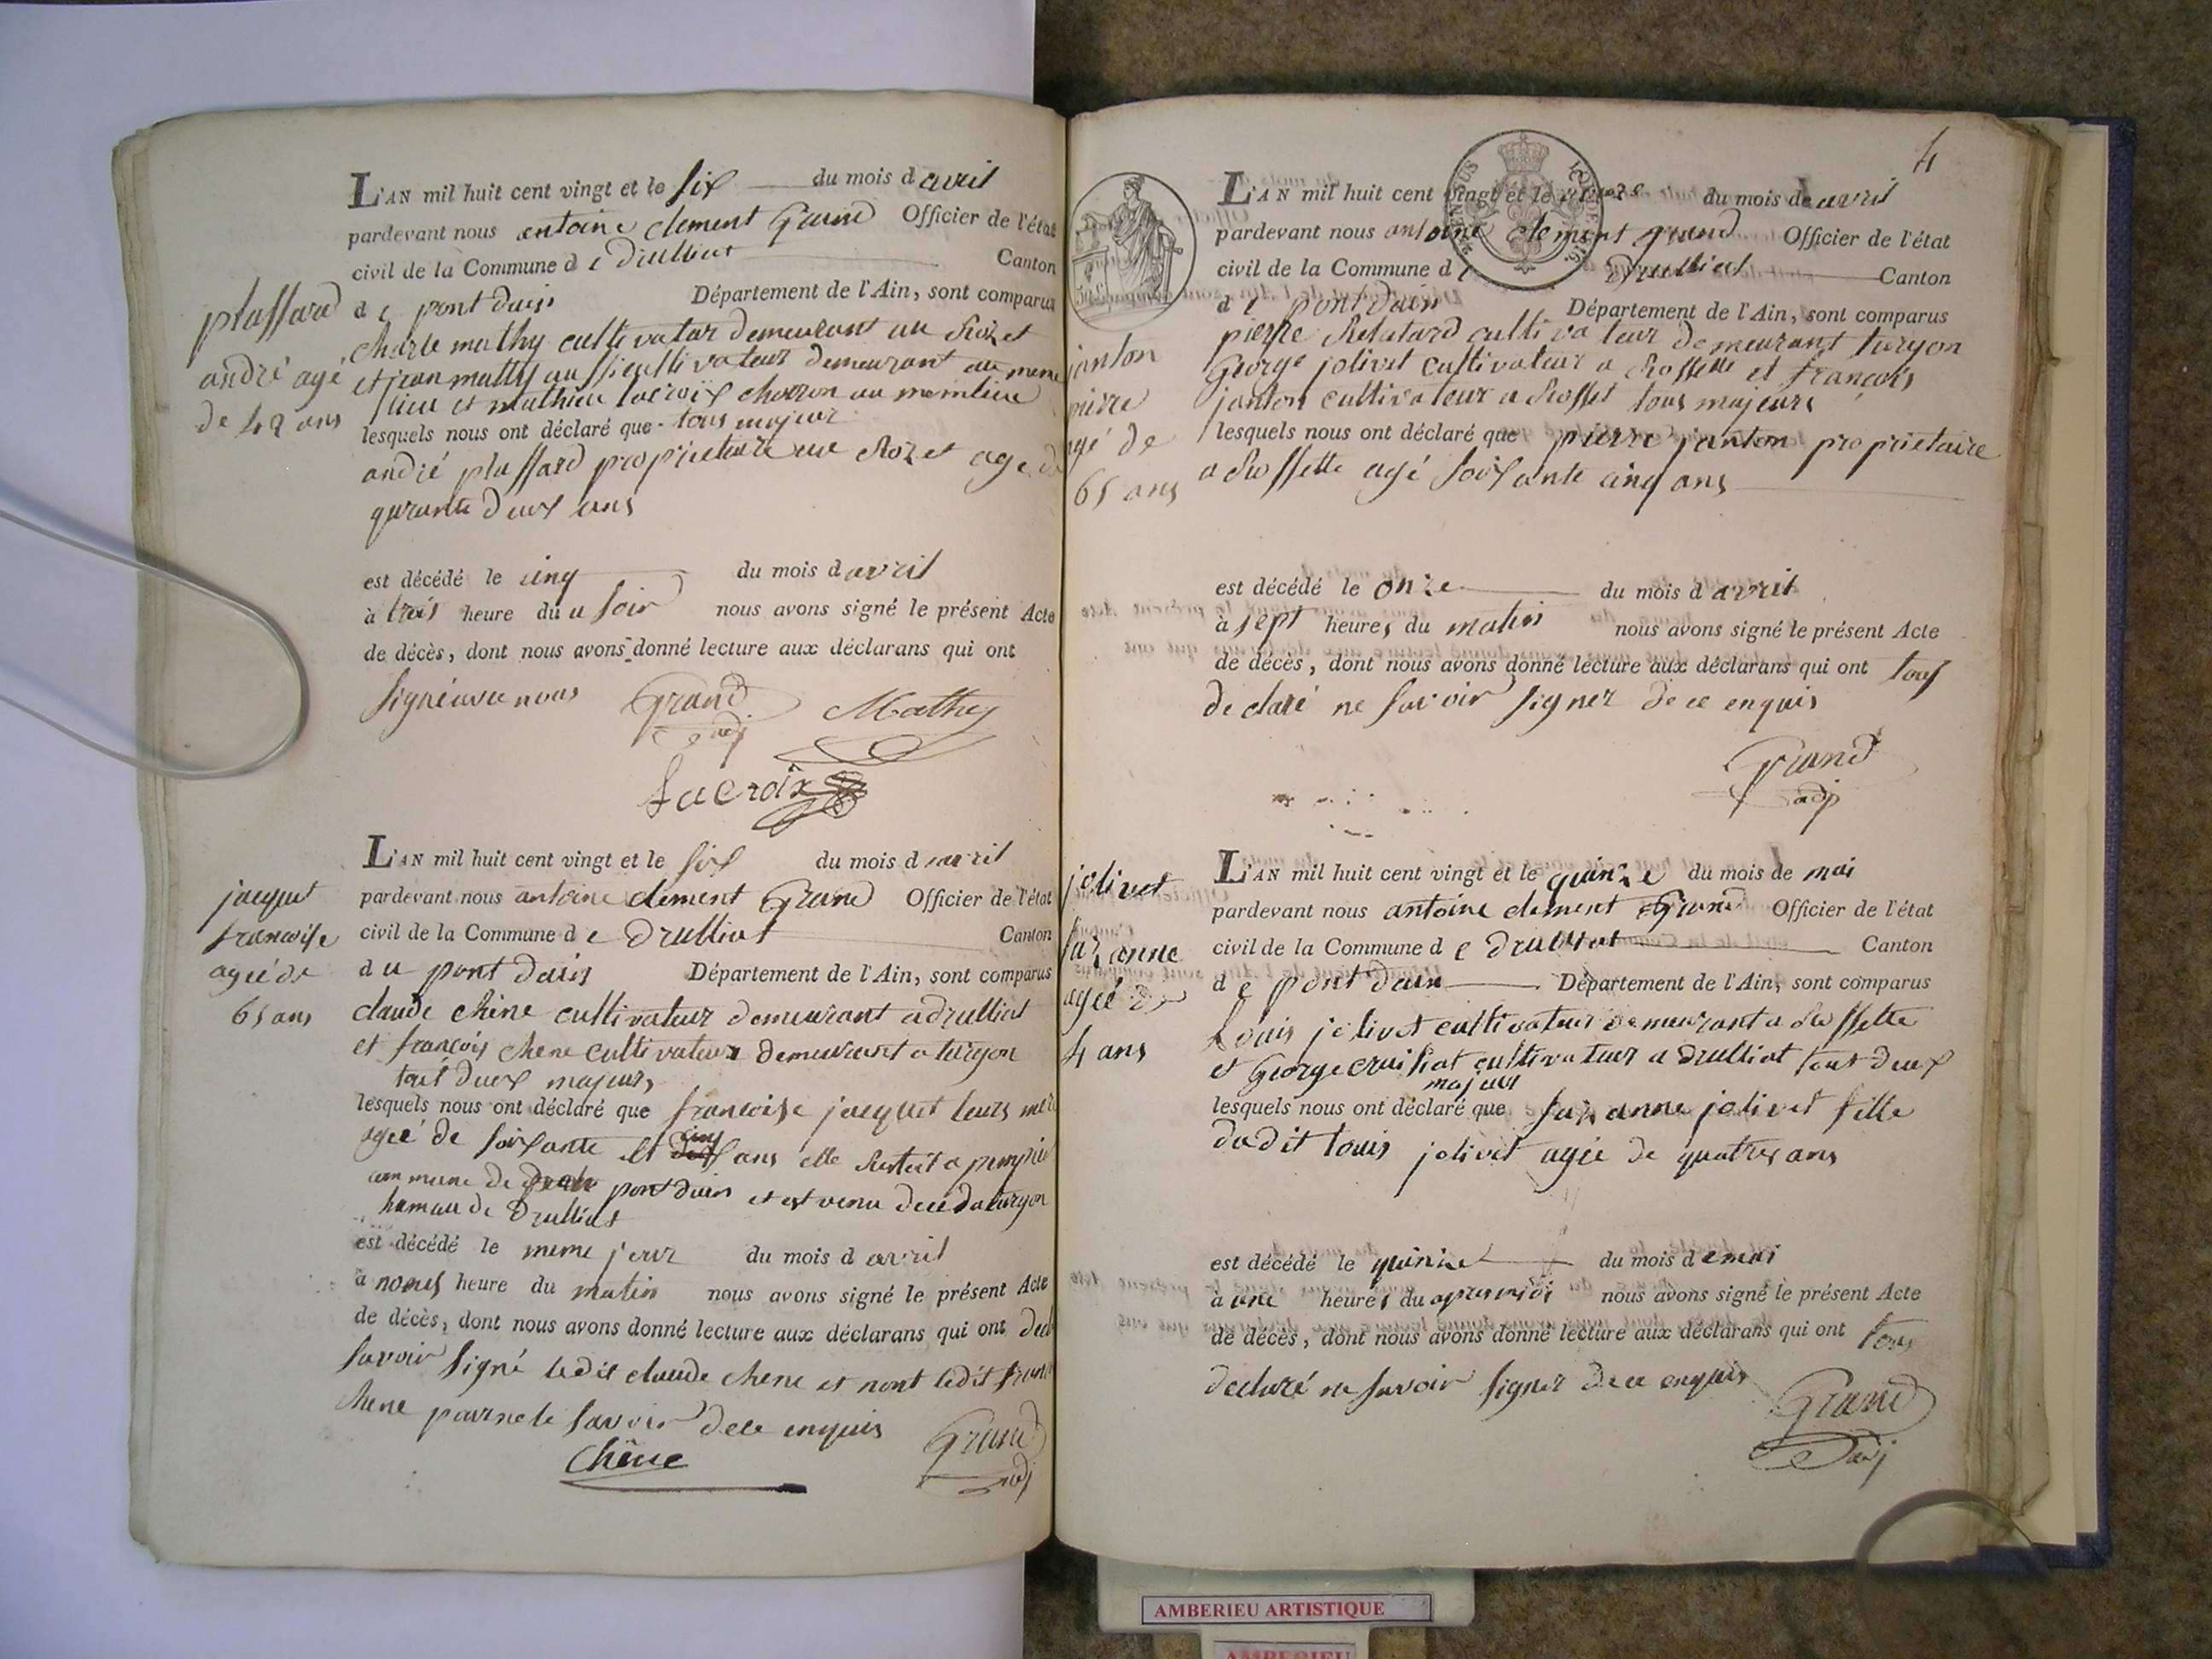 plassard
andré agé
de 42 ans
L'AN mil huit cent vingt et le six du mois d avril
pardevant nous antoine clement Grand Officier de l'état
civil de la Commune d e Druilliat Canton
d e pont dain Département de l'Ain, sont comparus
Charle mathy cultivatar demeurant au Rozet
et jean mathy aussi cultivateur demeurant au meme
lieu et mathieu lacroix charron au meme lieu
lesquels nous ont déclaré que tous majeur
andré plassard proprietaire au Rozet age de
quarante deux ans
est décédé le cinq du mois d avril
à trois heure du u soir nous avons signé le présent Acte
de décès, dont nous avons donné lecture aux déclarans qui ont
signé avec nous Grand Mathey
adj
Lacroix
jacquet
francoise
agée de
65 ans
L'AN mil huit cent vingt et le six du mois d avril
pardevant nous antoine clement Grand Officier de l'état
civil de la Commune d e Drulliat Canton
d u pont dain Département de l'Ain, sont comparus
claude chêne cultivateur demeurant a drulliat
et françois chene cultivateur demeurant a turgon
tout deux majeurs
lesquels nous ont déclaré que francoise jacquet leurs mere
agée de soixante et cinq ans elle Restait a
commune de pont dain et est venu deced a turgon
hamau de Drulliat
est décédé le meme jour du mois d avril
à heure du matin nous avons signé le présent Acte
de décès, dont nous avons donné lecture aux déclarans qui ont
savoir signé ledit claude chene et nont ledit
chene pour ne le savoir de ce enquis
Chêne Grand
adj
4
janton
pierre
agé de
65 ans
L'AN mil huit cent vingt et le onze du mois de avril
pardevant nous antoine clement grand Officier de l'état
civil de la Commune d e Drulliat Canton
d e pont dain Département de l'Ain, sont comparus
pierre Retatard cultivateur demeurant turgon
George jolivet cultivateur a Rossette et françois
janton cultivateur a Rosset tous majeurs
lesquels nous ont déclaré que pierre janton proprietaire
a Rossette agé soixante cinq ans
est décédé le onze du mois d avril
à sept heures du matin nous avons signé le présent Acte
de décès, dont nous avons donné lecture aux déclarans qui ont tous
declaré ne savoir signer de ce enquis
Grand
adj
jolivet
suzanne
agée de
4 ans
L'AN mil huit cent vingt et le quinze du mois de mai
pardevant nous antoine clement Grand Officier de l'état
civil de la Commune d e drulliat Canton
d e pont dain Département de l'Ain, sont comparus
Louis jolivet cultivateur demeurant a Rossette
et George cultivateur a drulliat tout deux
majeur
lesquels nous ont déclaré que suzanne jolivet fille
dudit louis jolivet agée de quatres ans
est décédé le quinze du mois d e mai
à une heures du apres midi nous avons signé le présent Acte
de décès, dont nous avons donné lecture aux déclarans qui ont tous
declaré ne savoir signer de ce enquis
Grand
adj
AMBERIEU ARTISTIQUE
AMBERIEU